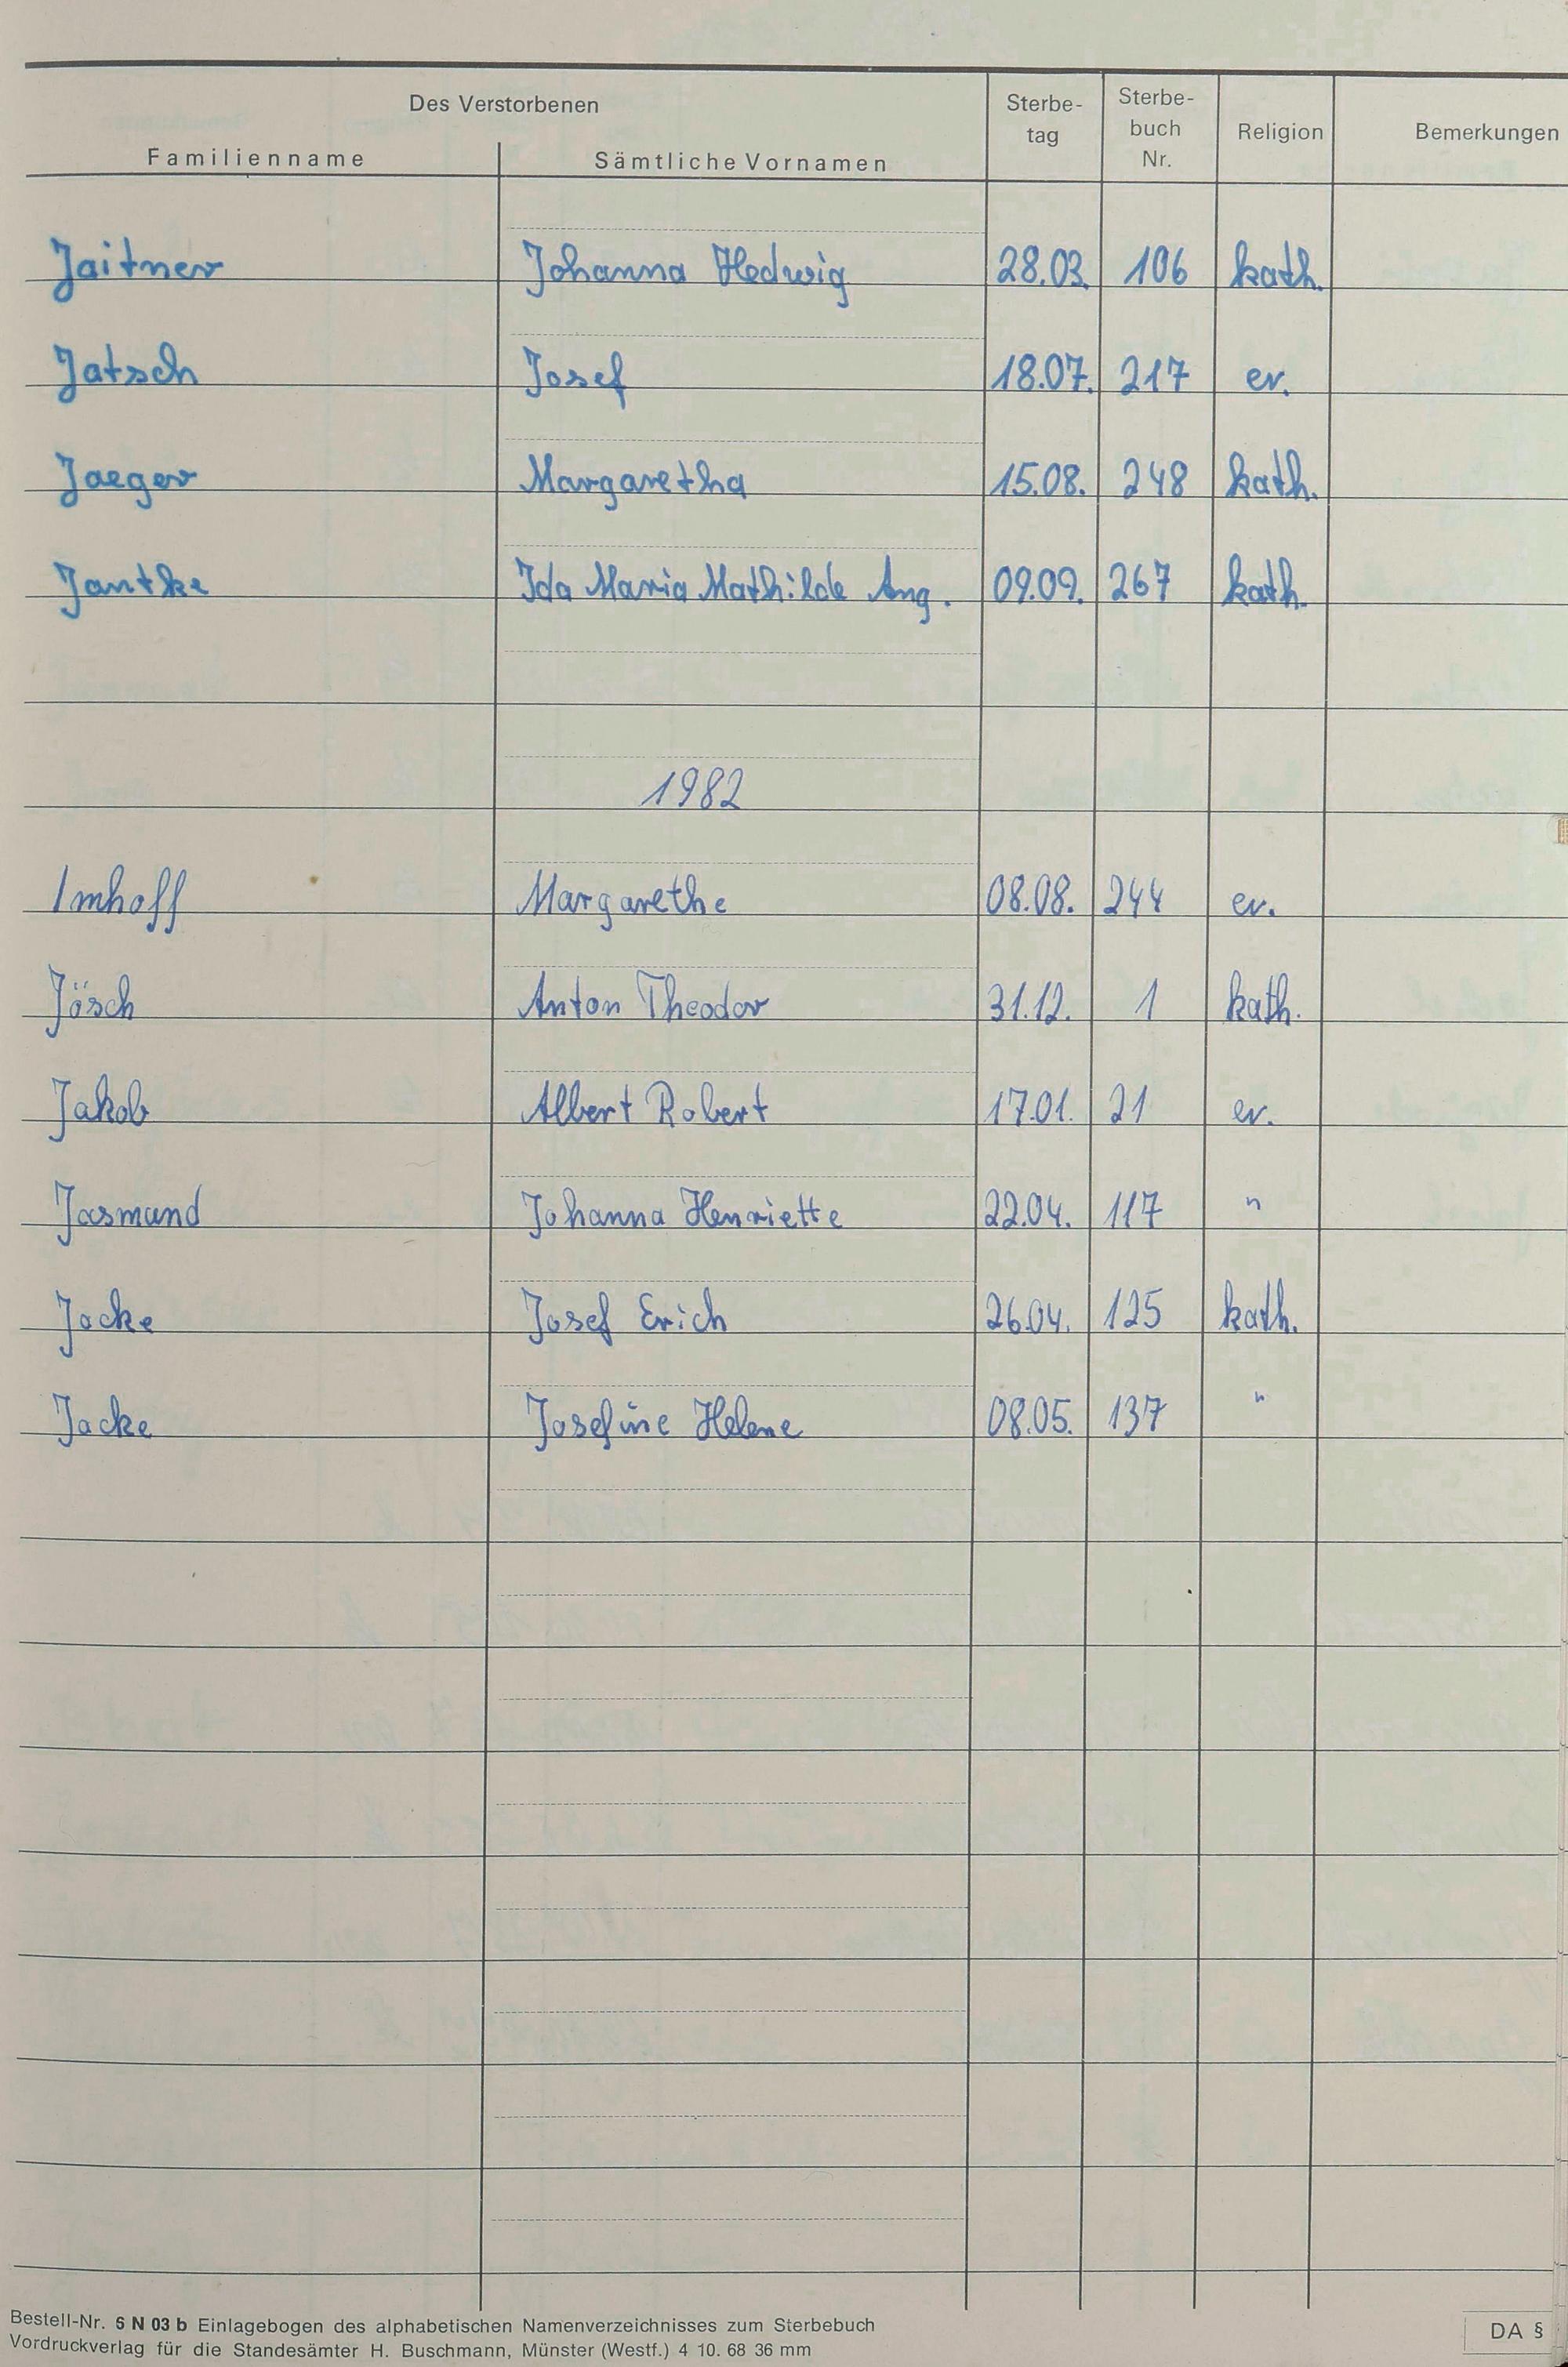 Des Verstorbenen
Familienname Sämtliche Vornamen Sterbe-tag Sterbe-buch Nr. Religion Bemerkungen
Jaitner Johanna Hedwig 28.03. 106 kath.
Jatsch Josef 18.07. 217 ev.
Jaeger Margaretha 15.08. 248 kath.
Jantke Ida Maria Mathilde Ang. 09.09. 267 kath.
1982
Imhoff Margarethe 08.08. 244 ev.
Jösch Anton Theodor 31.12. 1 kath.
Jakob Albert Robert 17.01. 21 ev.
Jasmund Johanna Henriette 22.04. 117 "
Jacke Josef Erich 26.04. 125 kath.
Jacke Josefine Helene 08.05. 137 "
Bestell-Nr. 6 N 03 b Einlagebogen des alphabetischen Namenverzeichnisses zum Sterbebuch
Vordruckverlag für die Standesämter H. Buschmann, Münster (Westf.) 4 10. 68 36 mm
DA §